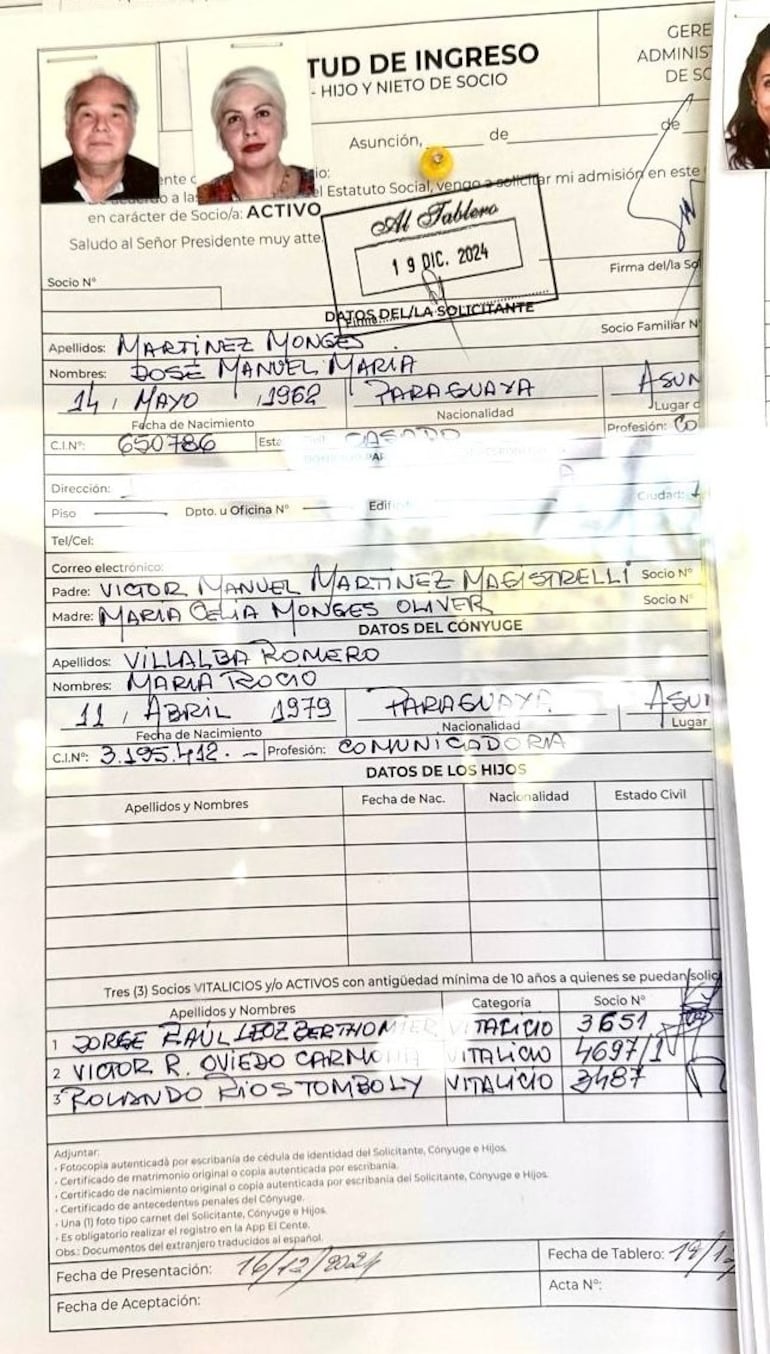 TUD DE INGRESO
- HIJO Y NIETO DE SOCIO
GERE
ADMINIS
DE SO
Asunción, de de
ente
a las el Estatuto Social, vengo a solicitar mi admisión en este
en carácter de Socio/a: ACTIVO
Saludo al Señor Presidente muy atte.
Al Tablero
19 DIC. 2024
Socio N°
Firma del/la Sol
DATOS DEL/LA SOLICITANTE
Socio Familiar N
Apellidos: MARTÍNEZ MONGES
Nombres: JOSÉ MANUEL MARIA
14, MAYO, 1962 PARAGUAYA ASUN
Fecha de Nacimiento Nacionalidad Lugar d
C.I.N°: 650786 Esta CASADO Profesión: CO
Dirección: Ciudad:
Piso Dpto. u Oficina N° Edifi
Tel/Cel:
Correo electrónico:
Padre: VICTOR MANUEL MARTINEZ MAGISTRELLI Socio N°
Madre: MARÍA CELIA MONGES OLIVER Socio N
DATOS DEL CÓNYUGE
Apellidos: VILLALBA ROMERO
Nombres: MARIA ROCIO
11, ABRIL 1979 PARAGUAYA ASUN
Fecha de Nacimiento Nacionalidad Lugar
C.I.N°: 3.195.412.- Profesión: COMUNICADORA
DATOS DE LOS HIJOS
Apellidos y Nombres Fecha de Nac. Nacionalidad Estado Civil
Tres (3) Socios VITALICIOS y/o ACTIVOS con antigüedad mínima de 10 años a quienes se puedan solic
Apellidos y Nombres Categoría Socio N°
1 JORGE RAÚL LEOZ BERTHOMIER VITALICIO 3651
2 VICTOR R. OVIEDO CARMONA VITALICIO 4697/1
3 ROLANDO RIOS TOMBOLY VITALICIO 3487
Adjuntar:
- Fotocopia autenticada por escribanía de cédula de identidad del Solicitante, Cónyuge e Hijos.
- Certificado de matrimonio original o copia autenticada por escribanía.
- Certificado de nacimiento original o copia autenticada por escribanía del Solicitante, Cónyuge e Hijos.
- Certificado de antecedentes penales del Cónyuge.
- Una (1) foto tipo carnet del Solicitante, Cónyuge e Hijos.
- Es obligatorio realizar el registro en la App El Cente.
Obs.: Documentos del extranjero traducidos al español.
Fecha de Presentación: 16/12/2024 Fecha de Tablero: 19/12
Fecha de Aceptación: Acta N°: